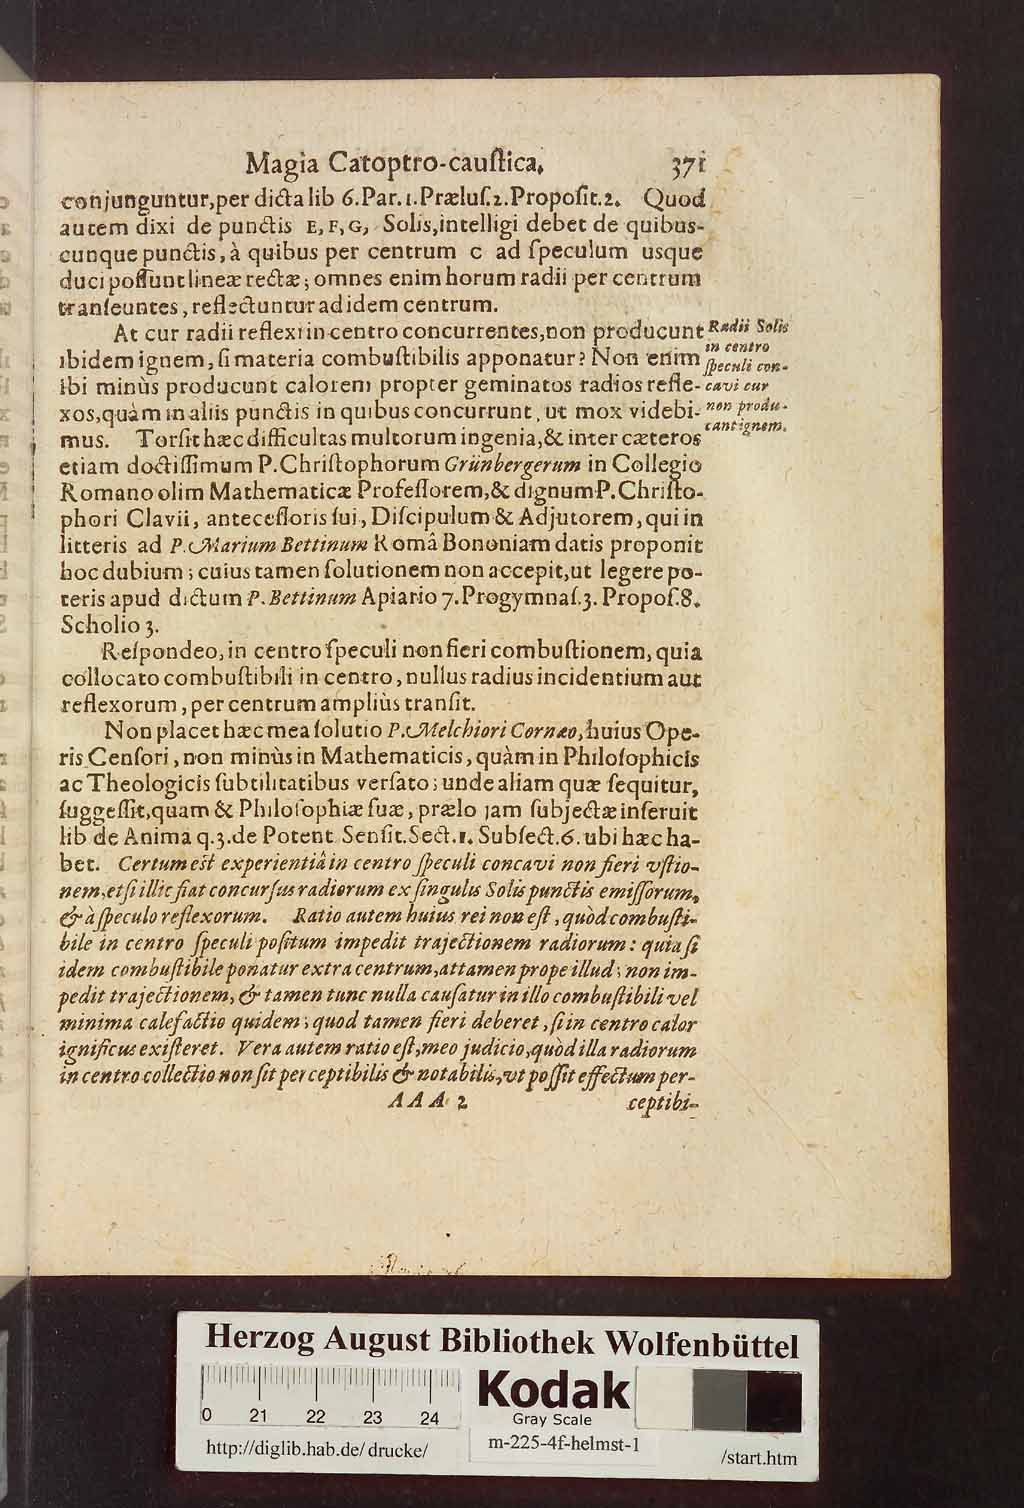 Magia Catoptro-cauſtica. 371
conjunguntur, per dicta lib 6. Par. 1. Præluſ. 2. Propoſit. 2. Quod
autem dixi de punctis E, F, G, Solis, intelligi debet de quibus-
cunque punctis, à quibus per centrum C ad ſpeculum usque
duci poſſunt lineæ rectæ; omnes enim horum radii per centrum
tranſeuntes, reflectuntur ad idem centrum.
At cur radii reflexi in centro concurrentes, non producunt
ibidem ignem, ſi materia combuſtibilis apponatur? Non enim
ibi minùs producunt calorem propter geminatos radios refle-
xos, quàm in aliis punctis in quibus concurrunt, ut mox videbi-
mus. Torſit hæc difficultas multorum ingenia, & inter cæteros
etiam doctiſſimum P. Chriſtophorum Grünbergerum in Collegio
Romano olim Mathematicæ Profeſſorem, & dignum P. Chriſto-
phori Clavii, anteceſſoris ſui, Diſcipulum & Adjutorem, qui in
litteris ad P. Marium Bettinum Româ Bononiam datis proponit
hoc dubium; cuius tamen ſolutionem non accepit, ut legere po-
teris apud dictum P. Bettinum Apiario 7. Progymnaſ. 3. Propoſ. 8.
Scholio 3.
Radii Solis
in centro
ſpeculi con-
cavi cur
non produ-
cant ignem.
Reſpondeo, in centro ſpeculi non fieri combuſtionem, quia
collocato combuſtibili in centro, nullus radius incidentium aut
reflexorum, per centrum ampliùs tranſit.
Non placet hæc mea ſolutio P. Melchiori Cornæo, huius Ope-
ris Cenſori, non minùs in Mathematicis, quàm in Philoſophicis
ac Theologicis ſubtilitatibus verſato; unde aliam quæ ſequitur,
ſuggeſſit, quam & Philoſophiæ ſuæ, prælo jam ſubjectæ inſeruit
lib de Anima q. 3. de Potent Senſit. Sect. 1. Subſect. 6. ubi hæc ha-
bet. Certum eſt experientiâ in centro ſpeculi concavi non fieri vſtio-
nem, etſi illic fiat concurſus radiorum ex ſingulis Solis punctis emiſſorum,
& à ſpeculo reflexorum. Ratio autem huius rei non eſt, quòd combuſti-
bile in centro ſpeculi poſitum impedit trajectionem radiorum: quia ſi
idem combuſtibile ponatur extra centrum, attamen prope illud; non im-
pedit trajectionem, & tamen tunc nulla cauſatur in illo combuſtibili vel
minima calefactio quidem; quod tamen fieri deberet, ſi in centro calor
ignificus exiſteret. Vera autem ratio eſt, meo judicio, quòd illa radiorum
in centro collectio non ſit perceptibilis & notabilis, vt poſſit effectum per-
AAA 2 ceptibi-
Herzog August Bibliothek Wolfenbüttel
0 21 22 23 24
Kodak
Gray Scale
http://diglib.hab.de/drucke/ m-225-4f-helmst-1 /start.htm